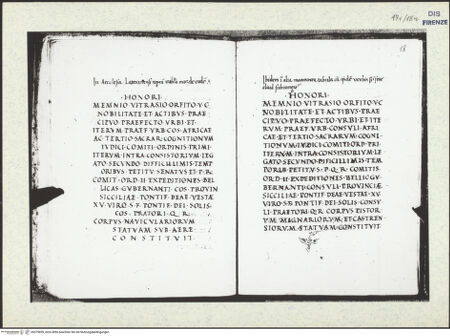 DIS
FIRENZE
18
·HONORI·
MEMNIO VITRASIO ORFITO·VC
NOBILITATE ET ACTIBVS PRAE
CIPVO PRAEFECTO VRBI·ET
ITERVM PRAEF VRB COS AFRICAE
AC TERTIO SACRAR COGNITIONVM
IVDICI COMITI ORDINIS PRIMI
ITERVM INTRA CONSISTORIVM LEG
ATO SECVNDO DIFFICILLIMIS TEMP
ORIBVS PETITV SENATVS ET P R
COMITI ORD II EXPEDITIONES BEL
LICAS GVBERNANTI COS PROVIN
SICILIAE PONTIF DEAE VESTAE
XV VIRO S F PONTIF DEI SOLIS
COS PRATORI Q R
CORPVS NAVICVLARIORVM
STATVAM SVB AERE
CONSTITVIT
HONORI
MEMNIO VITRASIO ORFITO VC
NOBILITATE ET ACTIBVS PRAE
CIPVO PRAEFECTO VRBI ET ITE
RVM PRAEF VRB CONSVLI AFRI
CAE ET TERTIO SACRARVM COGNI
TIONVM IVDICI COMITI ORD PRI
ITERVM INTRA CONSISTORIVM LE
GATO SECVNDO DIFFICILLIMIS TEM
PORIB PETITV S P Q R COMITIS
ORD II EXPEDITIONES BELLIC GV
BERNANTI CONSVLI PROVINCIAE
SICILIAE PONTIF DEAE VESTAE XV
VIRO S F PONTIF DEI SOLIS CONSV
LI PRAETORI Q R CORPVS PISTOR
VM MAGNARIORVM ET CASTREN
SIORVM STATVAM CONSTITVIT